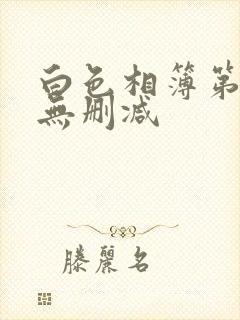 白色相簿第
無删减
滕麗名